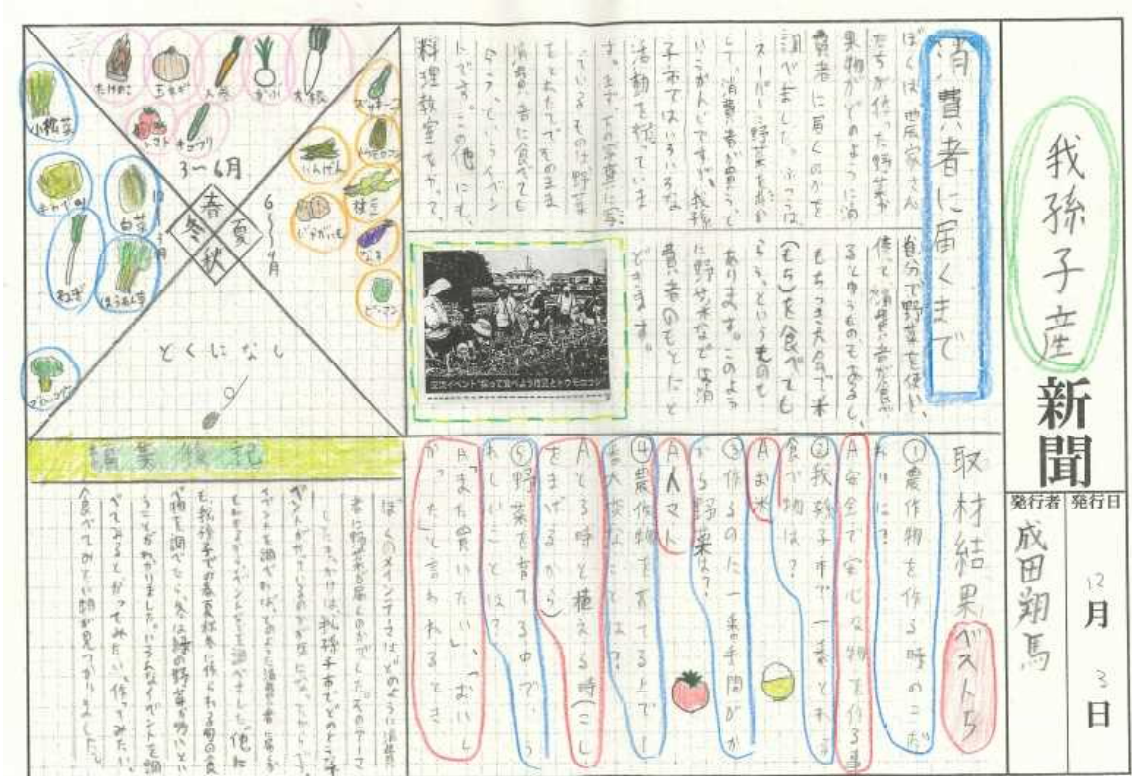 我孫子産
新聞
発行日
12月3日
発行者
成田翔馬
消費者に届くまで
ぼくは地いき農家さん
たちが作った野菜や
果物がどのように消
費者に届くのかを
調べました。ふつうは、
スーパーに野菜を
して、消費者が買うと
いうかんじですが、我孫
子市ではいろいろな
活動を
す。まず、下の写真に写
っているものは、野菜
をとれたてでそのまま
消費者に食べても
らう、というイベン
トです。この他にも、
料理教室をやって、
自分で野菜を使い、
作って消費者が食べ
るというものもあるし、
もちつき大会で米
(もち)を食べても
らう、というものも
あります。このよう
に野サイなどは消
費者のもとにとど
きます。
交流イベント"採って食べよう枝豆とトウモロコシ"
取材結果ベスト5
①農作物を作る時のこだ
わりは?
A安全で安心な物を作る事
②我孫子市で一番とれる
食べ物は?
Aお米
③作るのに一番手間がか
かる野菜は?
Aトマト
④農作物を育てる上で一
番大変なことは?
Aとる時と植える時(こし
をまげるから)
⑤野菜を育てる中で、う
れしいことは?
A「また食いたい」、「おいし
かった」と言われるとき
春
夏
秋
冬
3〜6月
たけのこ
玉ネギ
人参
かぶ
大根
トマト
キュウリ
6〜9月
ズッキーニ
トウモロコシ
いんげん
枝豆
じゃがいも
なす
ピーマン
とくになし
小松菜
キャベツ
白菜
ねぎ
ほうれん草
ブロッコリー
編集後記
ぼくのメインテーマは、どのように消費
者に野菜が届くのかでした。そのテーマに
したきっかけは、我孫子市でどのような
イベントがやっているのかが気になったからです。
も、我孫子での春夏秋冬に作られる旬の食
べ物を調べたら、冬は緑の野菜が多いとい
うことがわかりました。いろんなイベントを調
べてみるとやってみたい、作ってみたい、
食べてみたい物が見つかりました。